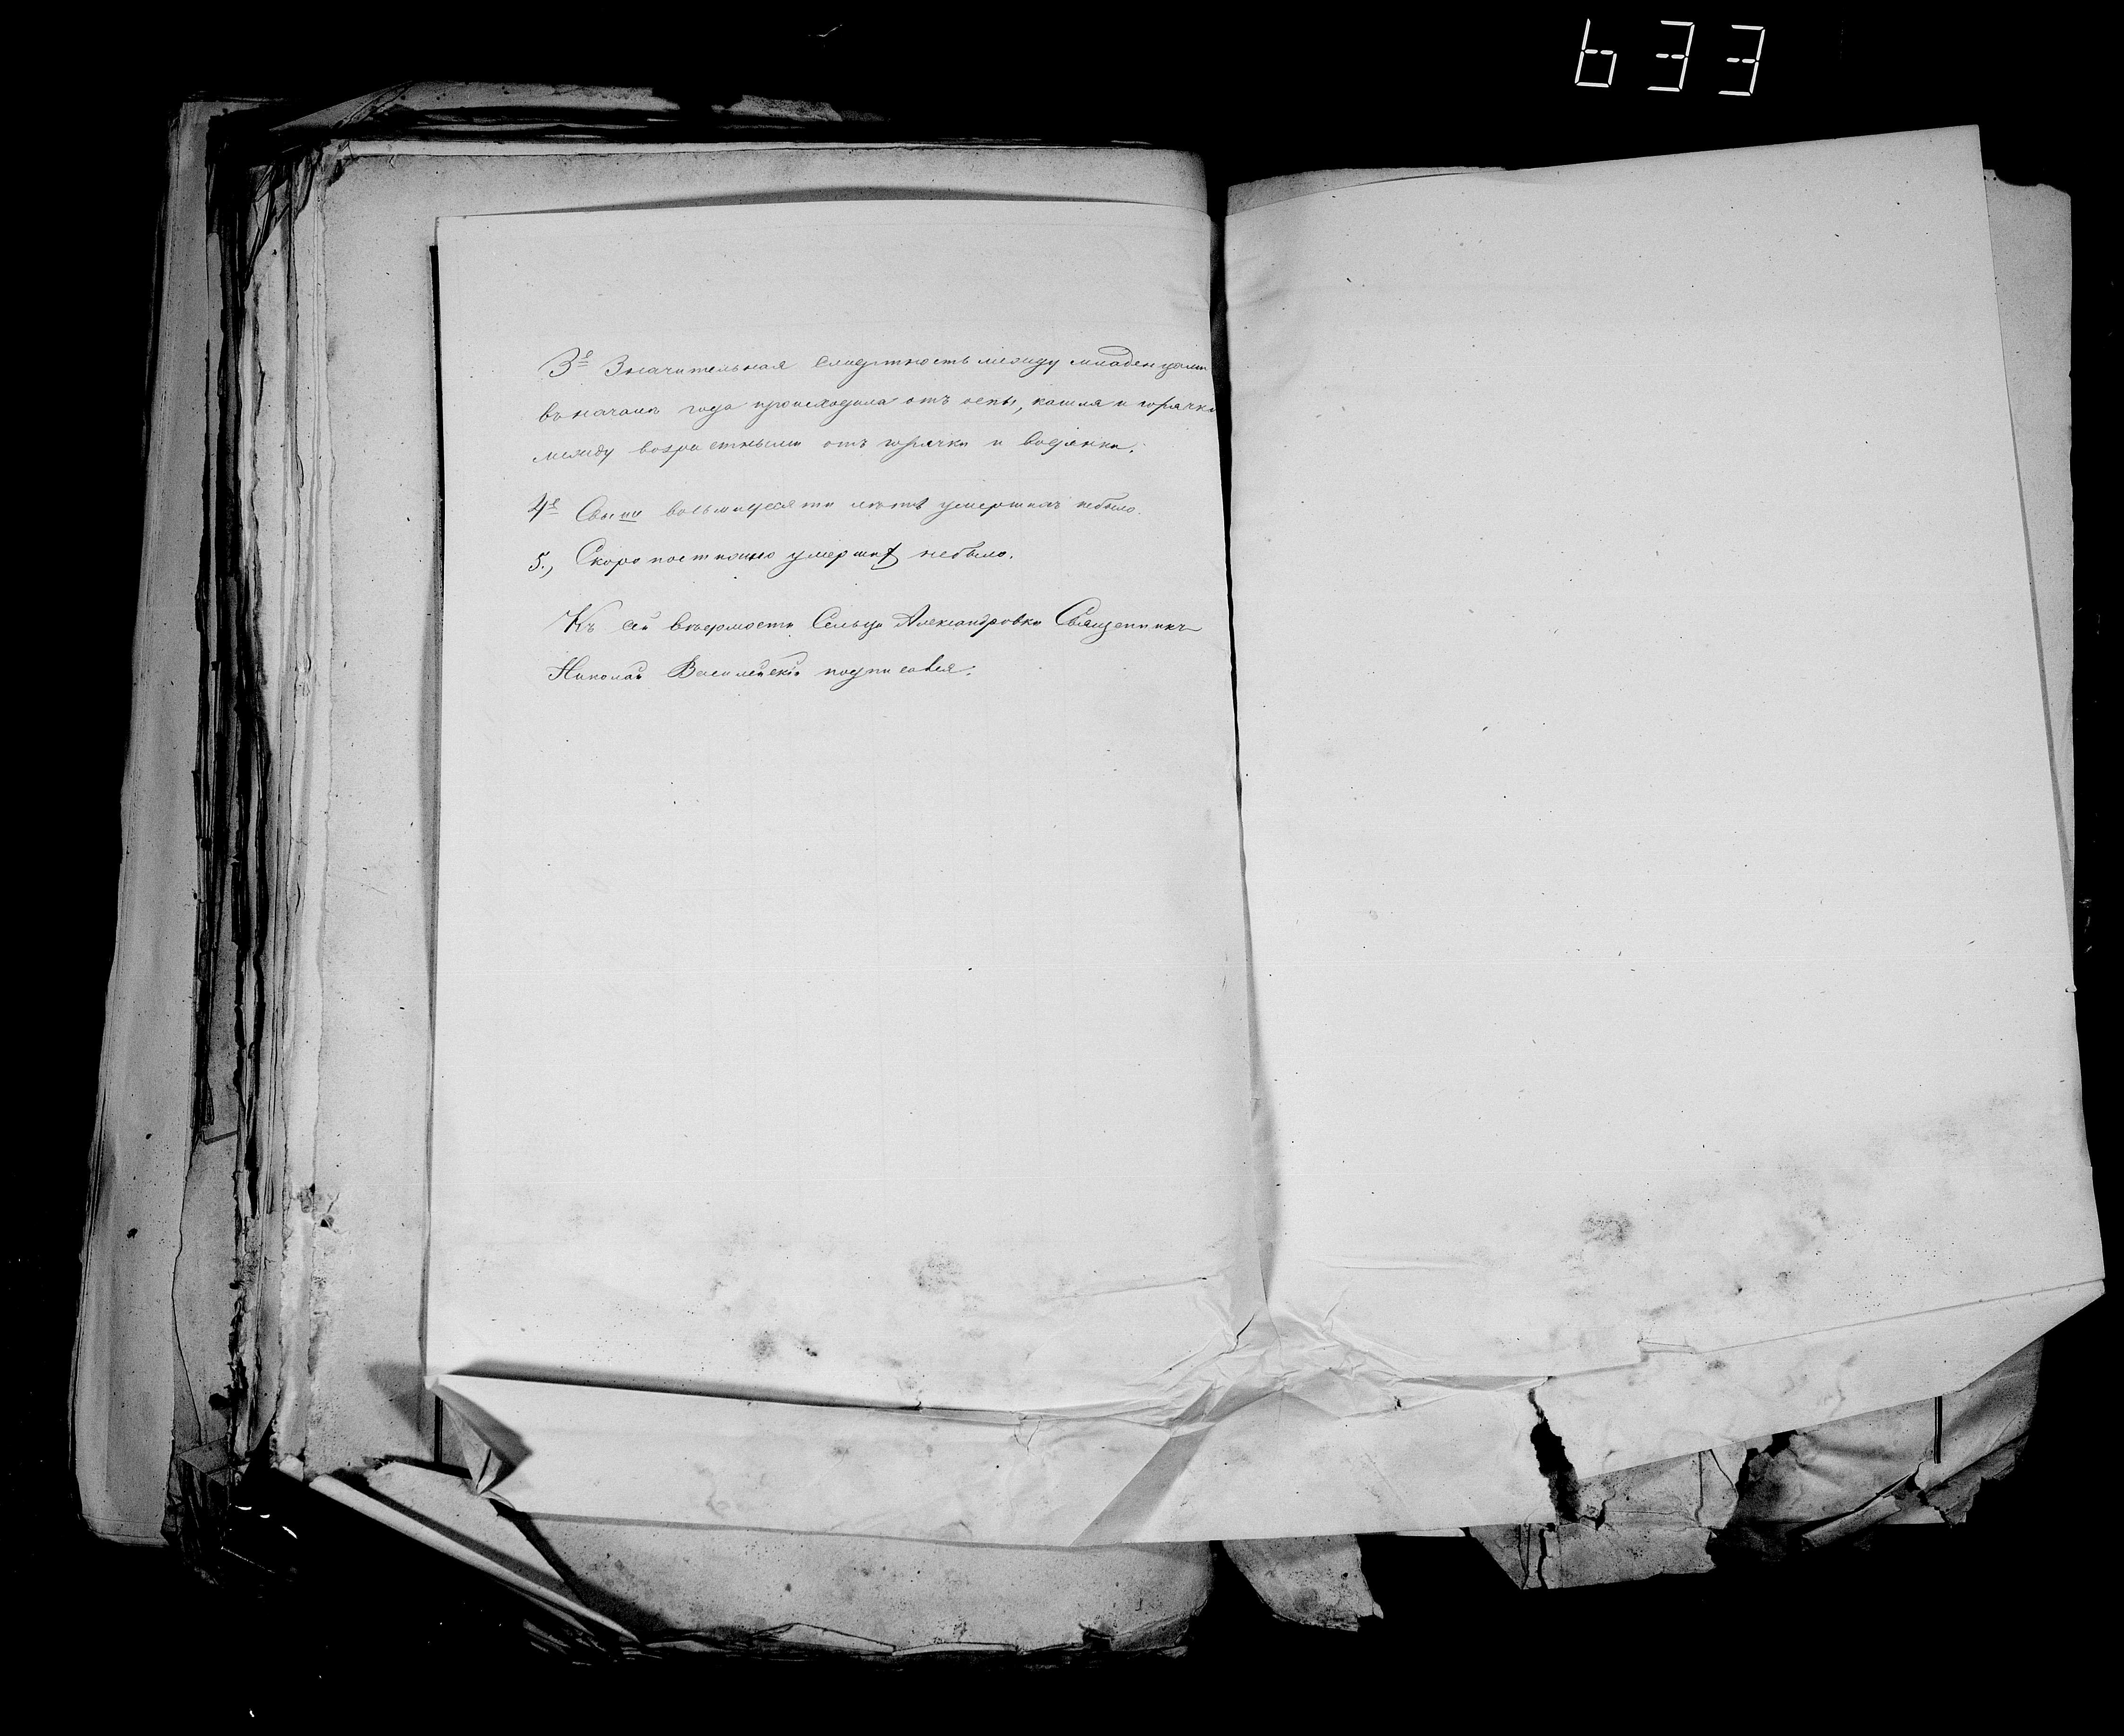 633
3е Значительная смертность между младенцами
въ началѣ года происходила отъ оспы, кашля и горячки
между возрастными отъ горячки и водянки.
4е Свыше восьмидесяти лѣтъ умершихъ небыло.
5., Скоропостижно умерших небыло.
Къ сей вѣдомости Сельца Александровки Священникъ
Николай подписался.